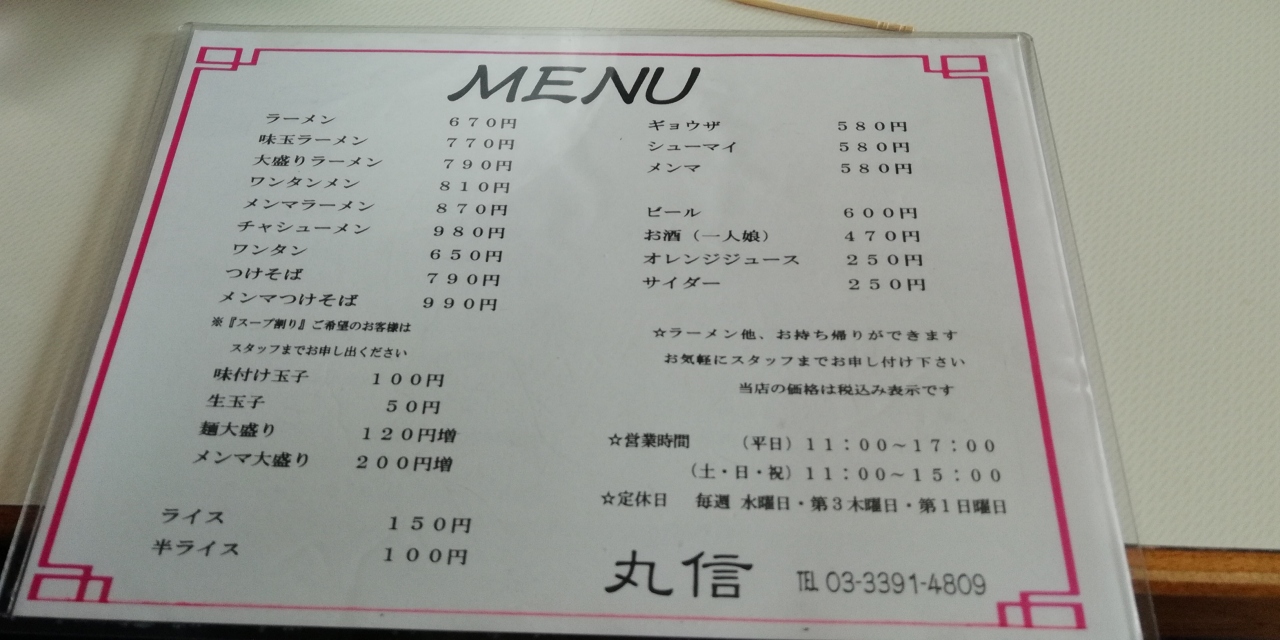 MENU
ラーメン　６７０円
味玉ラーメン　７７０円
大盛りラーメン　７９０円
ワンタンメン　８１０円
メンマラーメン　８７０円
チャシューメン　９８０円
ワンタン　６５０円
つけそば　７９０円
メンマつけそば　９９０円
※『スープ割り』ご希望のお客様は
スタッフまでお申し出ください
味付け玉子　１００円
生玉子　５０円
麺大盛り　１２０円増
メンマ大盛り　２００円増
ライス　１５０円
半ライス　１００円
ギョウザ　５８０円
シューマイ　５８０円
メンマ　５８０円
ビール　６００円
お酒（一人娘）　４７０円
オレンジジュース　２５０円
サイダー　２５０円
☆ラーメン他、お持ち帰りができます
お気軽にスタッフまでお申し付け下さい
当店の価格は税込み表示です
☆営業時間　（平日）１１：００～１７：００
（土・日・祝）１１：００～１５：００
☆定休日　毎週 水曜日・第３木曜日・第１日曜日
丸信　℡ 03-3391-4809